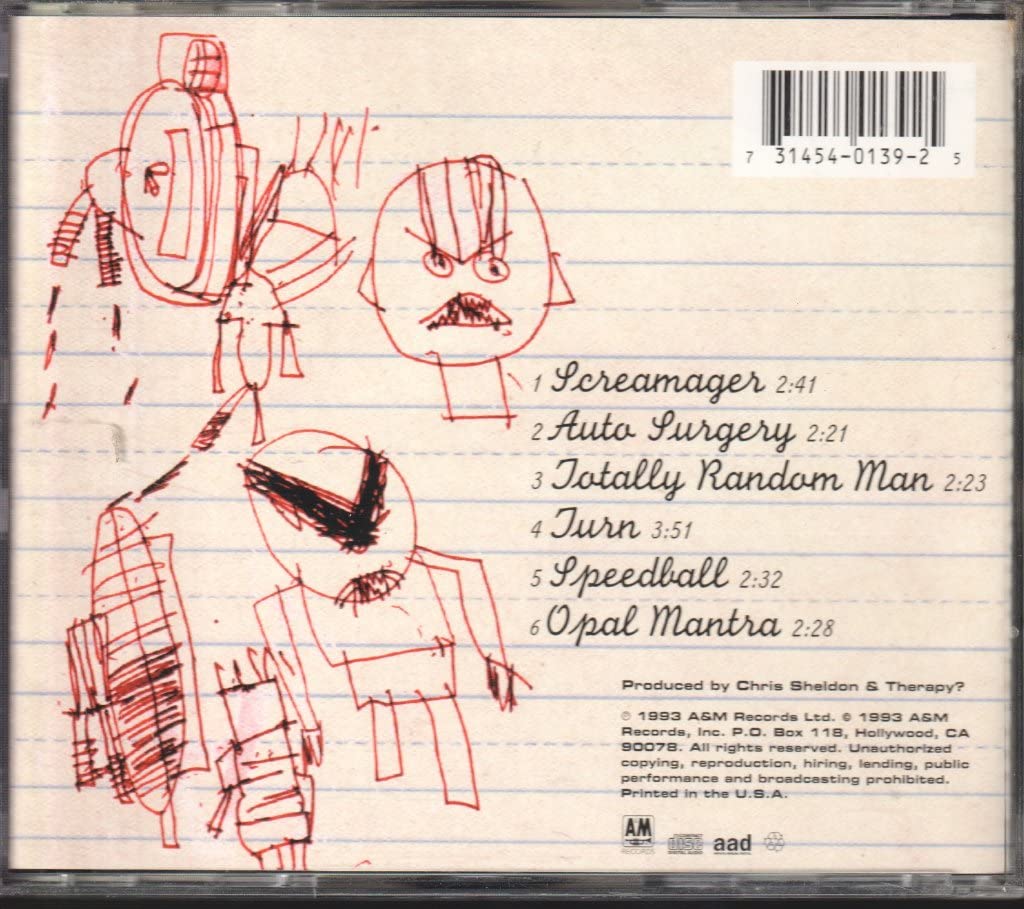 7 31454-0139-2 5
1 Screamager 2:41
2 Auto Surgery 2:21
3 Totally Random Man 2:23
4 Turn 3:51
5 Speedball 2:32
6 Opal Mantra 2:28
Produced by Chris Sheldon & Therapy?
℗ 1993 A&M Records Ltd. © 1993 A&M
Records, Inc. P.O. Box 118, Hollywood, CA
90078. All rights reserved. Unauthorized
copying, reproduction, hiring, lending, public
performance and broadcasting prohibited.
Printed in the U.S.A.
AM
RECORDS
COMPACT
disc
DIGITAL AUDIO
aad